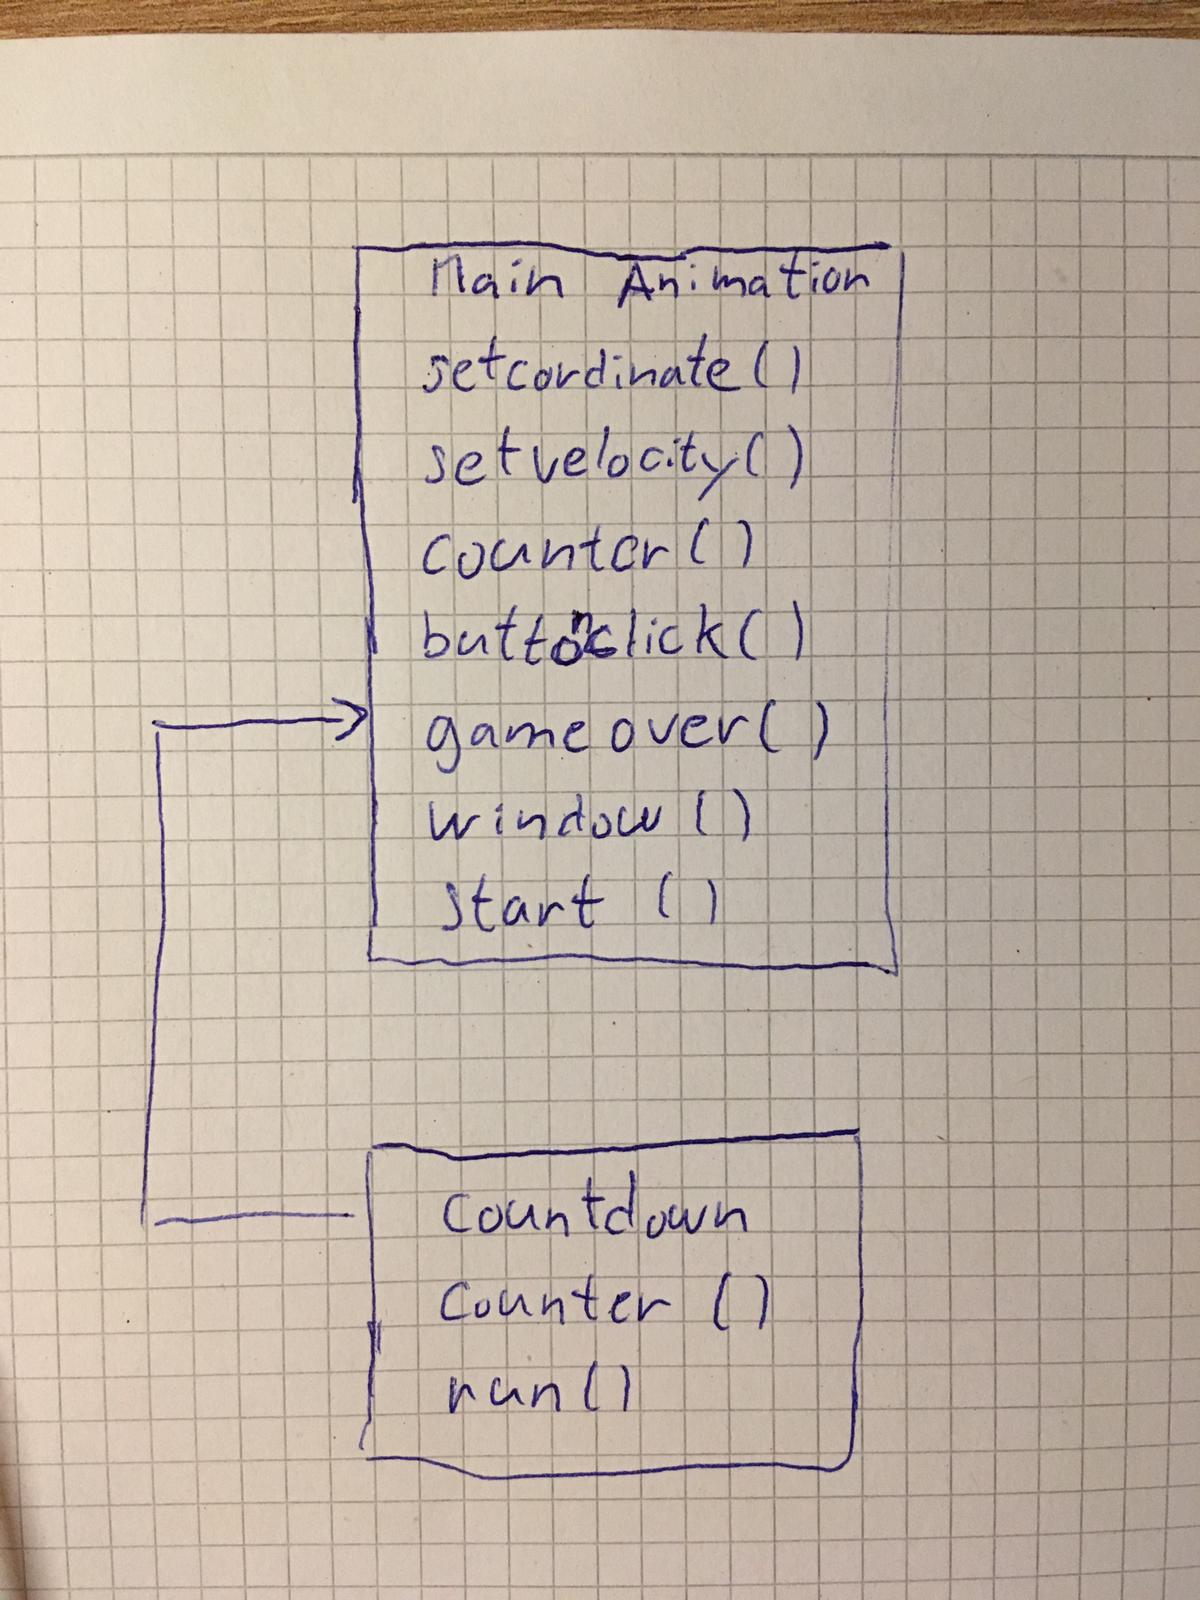 Main Animation
setcordinate()
setvelocity()
counter()
buttonclick()
game over()
window()
start ()
Countdown
Counter ()
run()